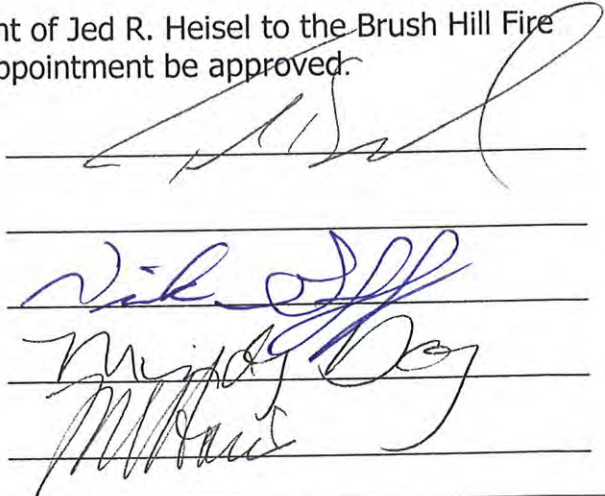 nt of Jed R. Heisel to the Brush Hill Fire
ppointment be approved.
Nick
Mindy